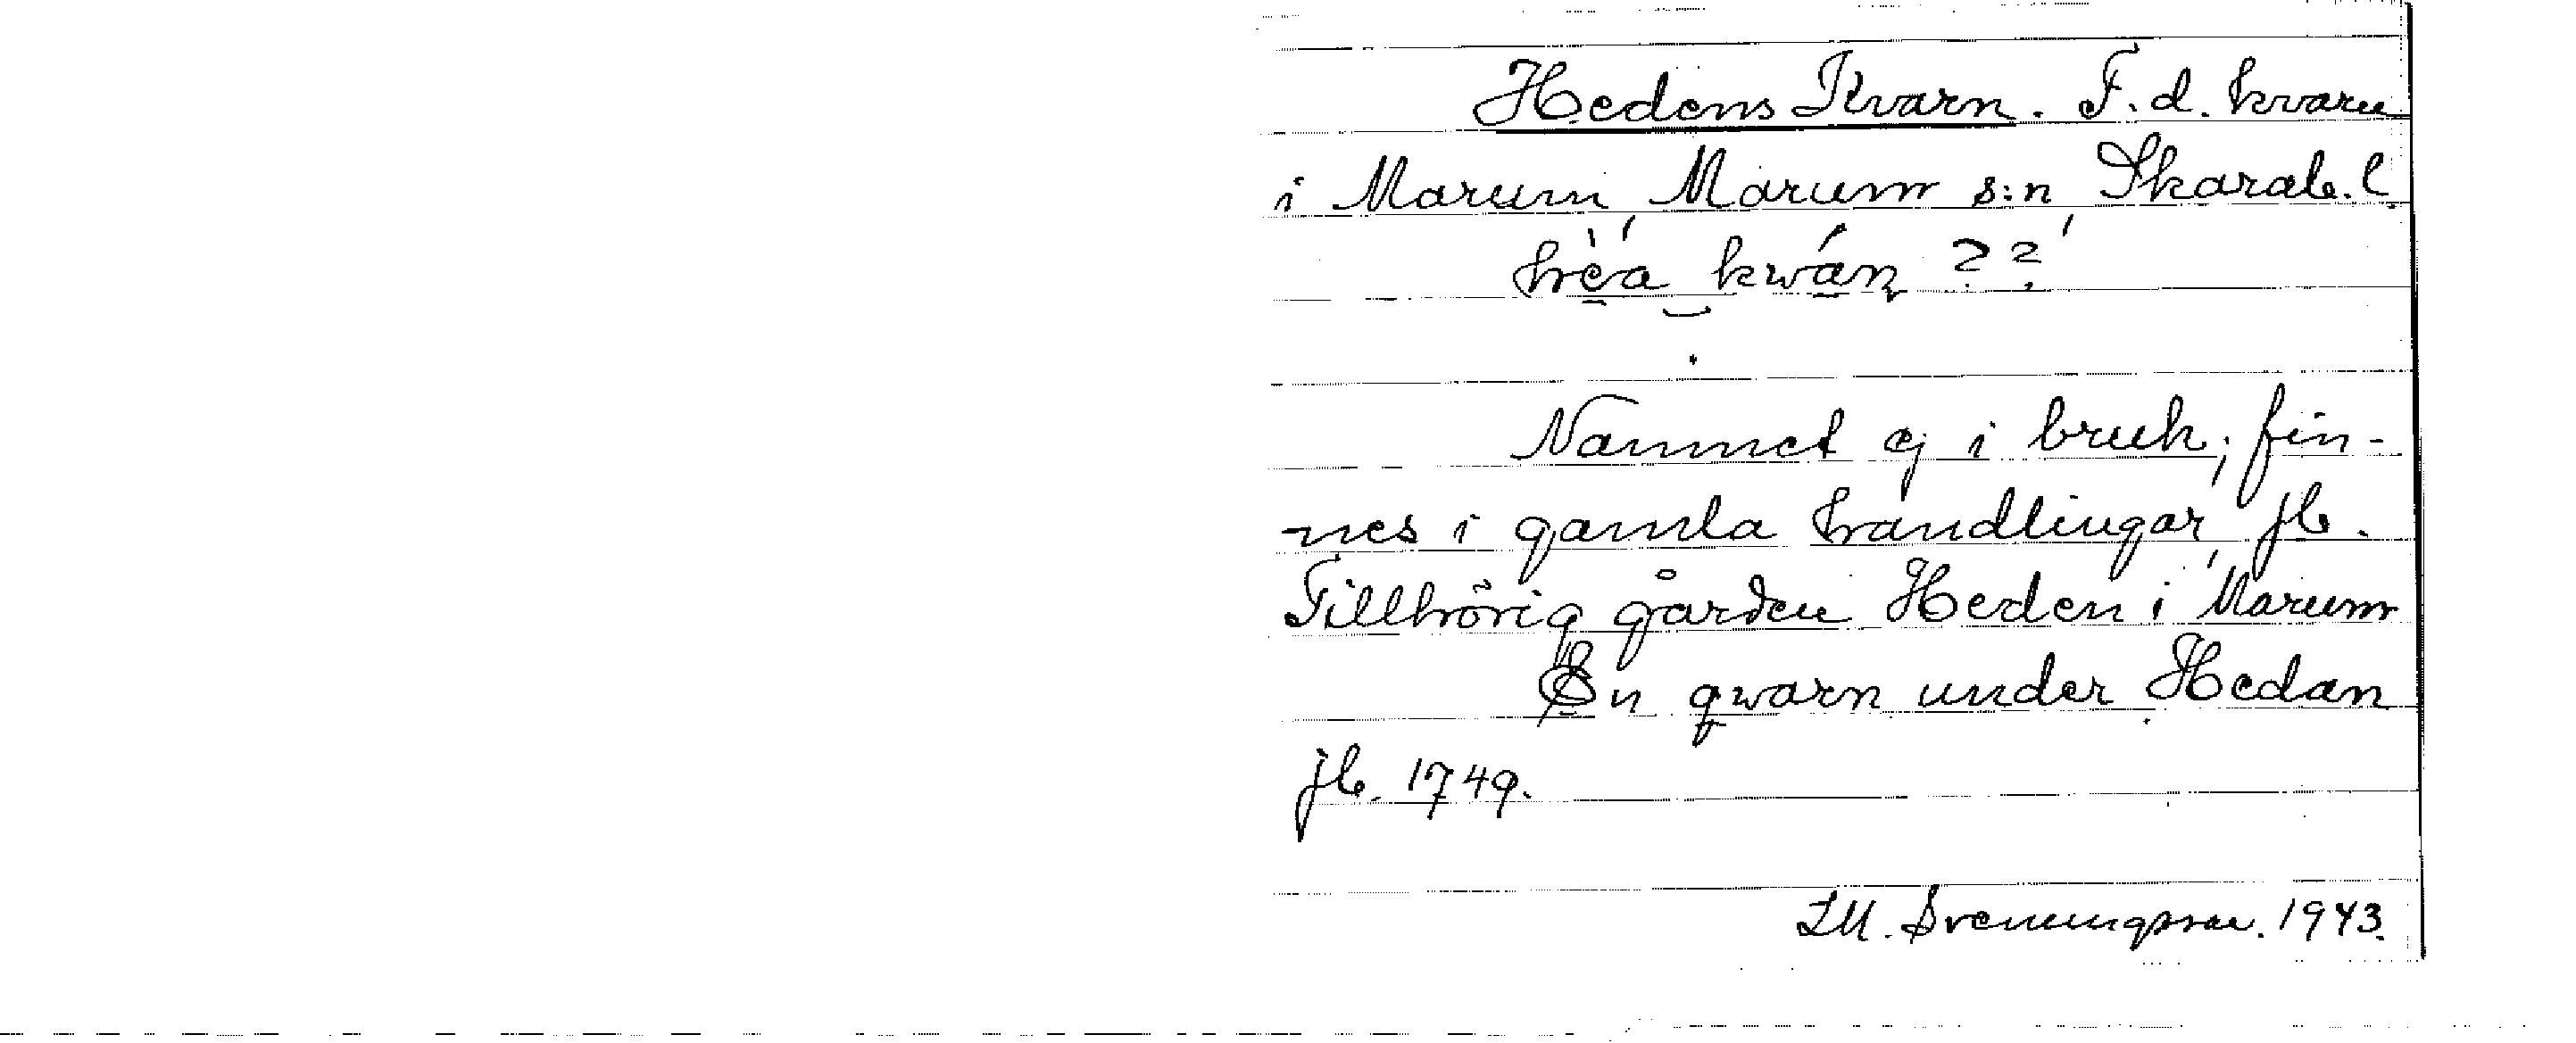 Hedens Kvarn. F. d. kvarn
i Marum, Marum s:n, Skarab. l.
hèa kwán ??
Namnet ej i bruk; fin-
nes i gamla handlingar, jb.
Tillhörig gården Heden i Marum
En qwarn under Hedan
jb. 1749.
I.M. Svenungsson. 1943.